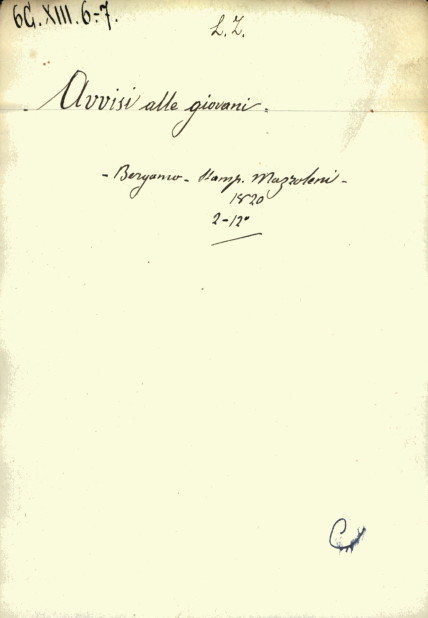 6C.XIII.6-7.
L. Z.
Avvisi alle giovani.
- Bergamo - Stamp. Mazzoleni -
1820
2-12°